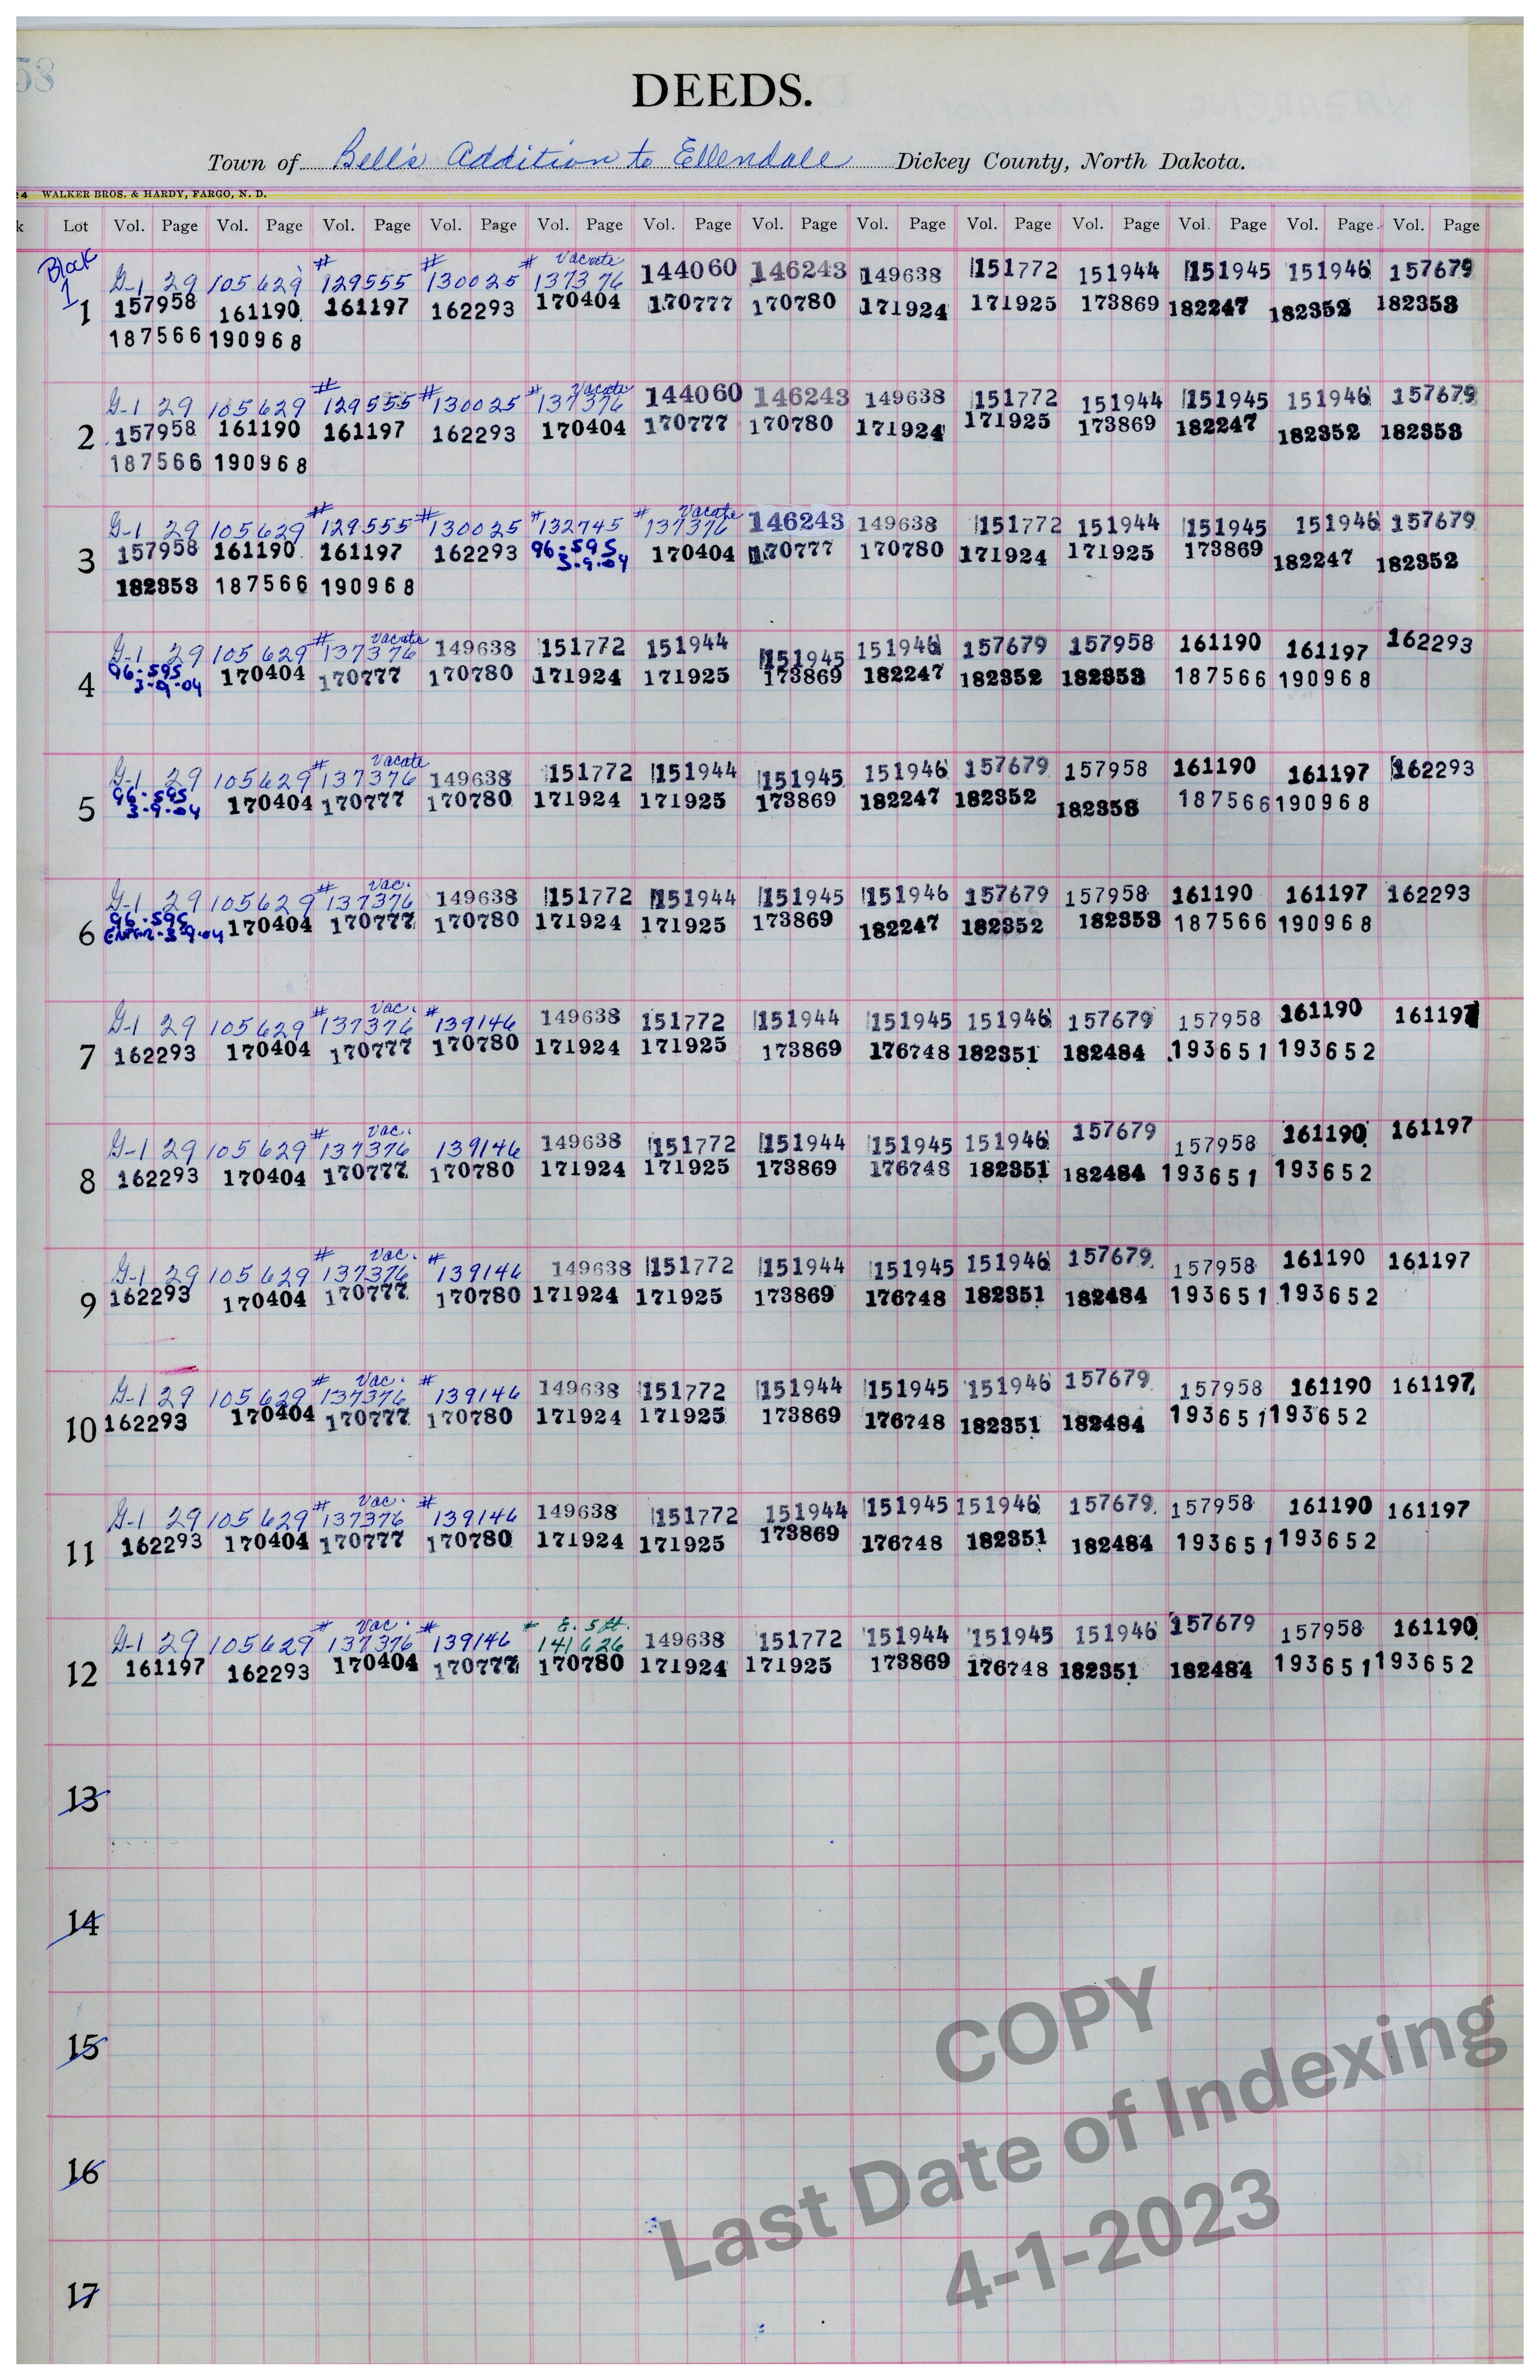 58
DEEDS.
Town of Bell's Addition to Ellendale Dickey County, North Dakota.
24 WALKER BROS. & HARDY, FARGO, N. D.
k Lot Vol. Page Vol. Page Vol. Page Vol. Page Vol. Page Vol. Page Vol. Page Vol. Page Vol. Page Vol. Page Vol. Page Vol. Page Vol. Page
Block 1
# # # Vacate
G-1 29 105 629 129555 130025 137376 144060 146243 149638 151772 151944 151945 151946 157679
1 157958 161190 161197 162293 170404 170777 170780 171924 171925 173869 182247 182352 182353
187566 190968
# # # Vacate
G-1 29 105 629 129555 130025 137376 144060 146243 149638 151772 151944 151945 151946 157679
2 157958 161190 161197 162293 170404 170777 170780 171924 171925 173869 182247 182352 182353
187566 190968
# # # # Vacate
G-1 29 105 629 129555 130025 132745 137376 146243 149638 151772 151944 151945 151946 157679
3 157958 161190 161197 162293 96-595 3-9-04 170404 170777 170780 171924 171925 173869 182247 182352
182353 187566 190968
# Vacate
G-1 29 105 629 137376 149638 151772 151944 151945 151946 157679 157958 161190 161197 162293
4 96-595 3-9-04 170404 170777 170780 171924 171925 173869 182247 182352 182353 187566 190968
# Vacate
G-1 29 105 629 137376 149638 151772 151944 151945 151946 157679 157958 161190 161197 162293
5 96-595 3-9-04 170404 170777 170780 171924 171925 173869 182247 182352 182353 187566 190968
# Vac.
G-1 29 105 629 137376 149638 151772 151944 151945 151946 157679 157958 161190 161197 162293
6 96-595 3-9-04 170404 170777 170780 171924 171925 173869 182247 182352 182353 187566 190968
# Vac. #
G-1 29 105 629 137376 139146 149638 151772 151944 151945 151946 157679 157958 161190 161197
7 162293 170404 170777 170780 171924 171925 173869 176748 182351 182484 193651 193652
# Vac.
G-1 29 105 629 137376 139146 149638 151772 151944 151945 151946 157679 157958 161190 161197
8 162293 170404 170777 170780 171924 171925 173869 176748 182351 182484 193651 193652
# Vac. #
G-1 29 105 629 137376 139146 149638 151772 151944 151945 151946 157679 157958 161190 161197
9 162293 170404 170777 170780 171924 171925 173869 176748 182351 182484 193651 193652
# Vac. #
G-1 29 105 629 137376 139146 149638 151772 151944 151945 151946 157679 157958 161190 161197
10 162293 170404 170777 170780 171924 171925 173869 176748 182351 182484 193651 193652
# Vac. #
G-1 29 105 629 137376 139146 149638 151772 151944 151945 151946 157679 157958 161190 161197
11 162293 170404 170777 170780 171924 171925 173869 176748 182351 182484 193651 193652
# Vac. # # E. 5 ft.
G-1 29 105 629 137376 139146 141626 149638 151772 151944 151945 151946 157679 157958 161190
12 161197 162293 170404 170777 170780 171924 171925 173869 176748 182351 182484 193651 193652
13
14
15
16
17
COPY
Last Date of Indexing
4-1-2023